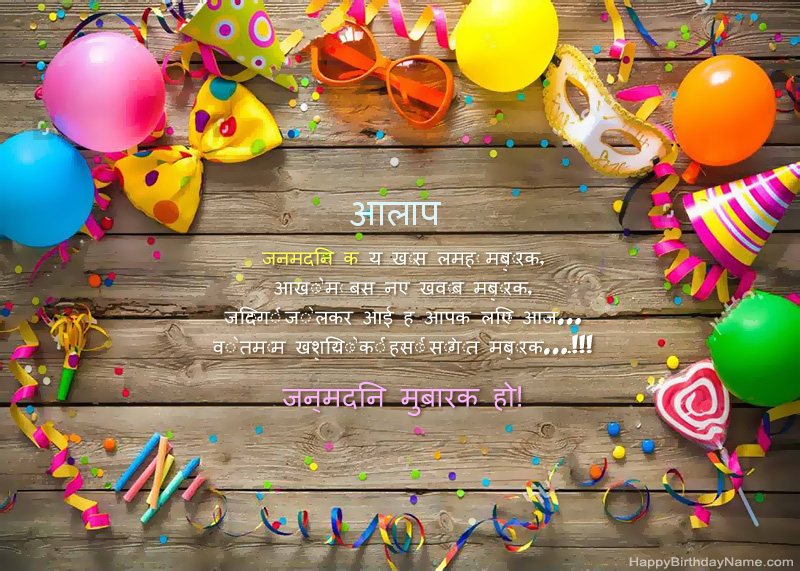 आलाप
जनमदनि क य खास लमहा मबारक,
आखों म बस नए खवाब मबारक,
जदिगी जो लेकर आई ह आपक लएि आज...
वो तमाम खशयिों की हसीं सौगात मबारक...!!!
जन्मदनि मुबारक हो!
HappyBirthdayName.com